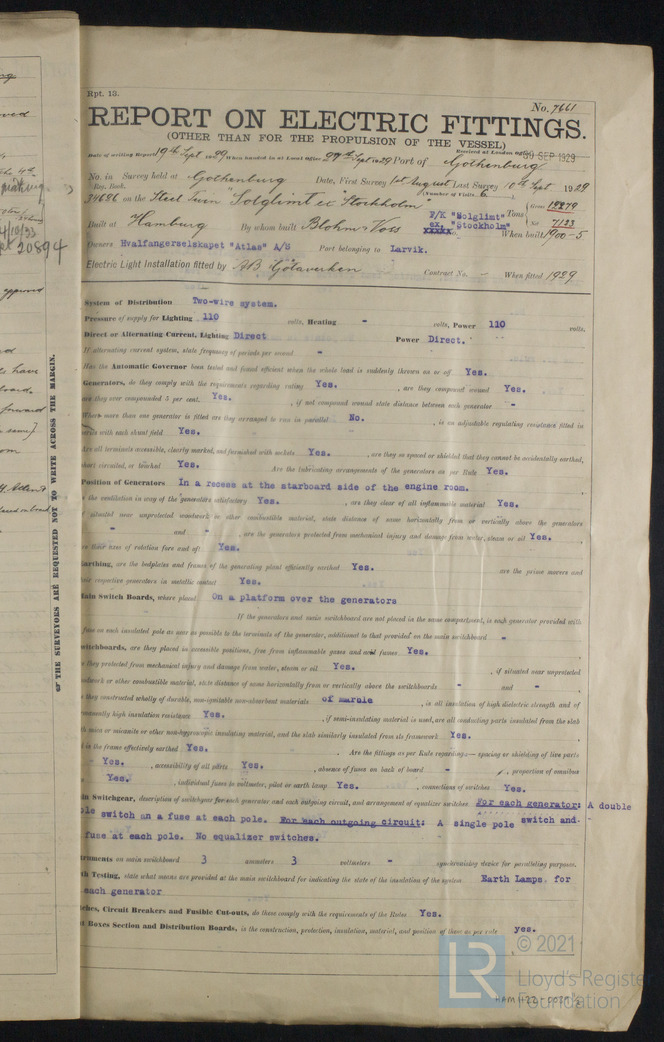 Rpt. 13.
No. 7661
REPORT ON ELECTRIC FITTINGS.
(OTHER THAN FOR THE PROPULSION OF THE VESSEL)
Received at London Office 30 SEP 1929
Date of writing Report 19th Sept 1929 When handed in at Local Office 27th Sept 1929 Port of Gothenburg
No. in Survey held at Gothenburg Date, First Survey 1st August Last Survey 10th Sept 1929
Reg. Book. (Number of Visits 6)
34686 on the Steel Twin "Solglimt ex Stockholm"
F/K "Solglimt" Tons Gross 12279
ex. "Stockholm" Net 7123
Built at Hamburg By whom built Blohm & Voss When built 1900-5
Owners Hvalfangerselskapet "Atlas" A/S Port belonging to Larvik.
Electric Light Installation fitted by AB Götaverken Contract No. - When fitted 1929
System of Distribution Two-wire system.
Pressure of supply for Lighting 110 volts, Heating - volts, Power 110 volts.
Direct or Alternating Current, Lighting Direct Power Direct.
If alternating current system, state frequency of periods per second -
Has the Automatic Governor been tested and found efficient when the whole load is suddenly thrown on or off Yes.
Generators, do they comply with the requirements regarding rating Yes. , are they compound wound Yes.
are they over compounded 5 per cent. Yes. , if not compound wound state distance between each generator -
Where more than one generator is fitted are they arranged to run in parallel No. , is an adjustable regulating resistance fitted in
series with each shunt field Yes.
Are all terminals accessible, clearly marked, and furnished with sockets Yes. , are they so spaced or shielded that they cannot be accidentally earthed,
short circuited, or touched Yes. Are the lubricating arrangements of the generators as per Rule Yes.
Position of Generators In a recess at the starboard side of the engine room.
is the ventilation in way of the generators satisfactory Yes. , are they clear of all inflammable material Yes.
if situated near unprotected woodwork or other combustible material, state distance of same horizontally from or vertically above the generators
- and - , are the generators protected from mechanical injury and damage from water, steam or oil Yes.
are their axes of rotation fore and aft Yes.
Earthing, are the bedplates and frames of the generating plant efficiently earthed Yes. are the prime movers and
their respective generators in metallic contact Yes.
Main Switch Boards, where placed On a platform over the generators
If the generators and main switchboard are not placed in the same compartment, is each generator provided with
fuse on each insulated pole as near as possible to the terminals of the generator, additional to that provided on the main switchboard -
Switchboards, are they placed in accessible positions, free from inflammable gases and acid fumes Yes.
are they protected from mechanical injury and damage from water, steam or oil Yes. , if situated near unprotected
woodwork or other combustible material, state distance of same horizontally from or vertically above the switchboards - and -
are they constructed wholly of durable, non-ignitable non-absorbent materials of marble , is all insulation of high dielectric strength and of
permanently high insulation resistance Yes. , if semi-insulating material is used, are all conducting parts insulated from the slab
with mica or micanite or other non-hygroscopic insulating material, and the slab similarly insulated from its framework Yes.
and is the frame effectively earthed Yes. Are the fittings as per Rule regarding:— spacing or shielding of live parts
Yes. , accessibility of all parts Yes. , absence of fuses on back of board - , proportion of omnibus
Yes. , individual fuses to voltmeter, pilot or earth lamp Yes. , connections of switches Yes.
Main Switchgear, description of switchgear for each generator and each outgoing circuit, and arrangement of equalizer switches For each generator: A double
pole switch an a fuse at each pole. For each outgoing circuit: A single pole switch and
fuse at each pole. No equalizer switches.
Instruments on main switchboard 3 ammeters 3 voltmeters - synchronising device for paralleling purposes.
Earth Testing, state what means are provided at the main switchboard for indicating the state of the insulation of the system Earth Lamps for
each generator
Switches, Circuit Breakers and Fusible Cut-outs, do these comply with the requirements of the Rules Yes.
Joint Boxes Section and Distribution Boards, is the construction, protection, insulation, material, and position of these as per rule yes.
THE SURVEYORS ARE REQUESTED NOT TO WRITE ACROSS THE MARGIN.
LR © 2021
Lloyd's Register
Foundation